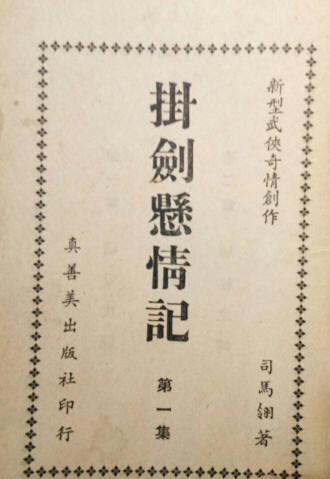 新型武俠奇情創作
司馬翎著
掛劍懸情記
第一集
真善美出版社印行